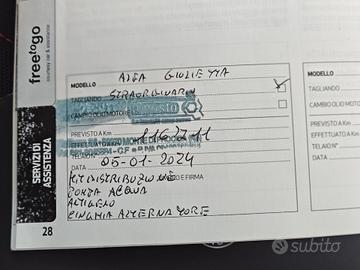 freetogo
courtesy car & assistance
SERVIZI DI
ASSISTENZA
MODELLO ALFA GIULIETTA
TAGLIANDO STRAORDINARIO
CAMBIO OLIO MOTORE
PREVISTO A Km
EFFETTUATO A Km
TELAIO N°
DATA 05-01-2024
KIT DISTRIBUZIONE
E FIRMA
POMPA ACQUA
ANTIGELO
CINGHIA ALTERNATORE
28
MODELLO
TAGLIANDO
CAMBIO OLIO MO
PREVISTO A Km
EFFETTUATO A K
TELAIO N°
DATA
subito